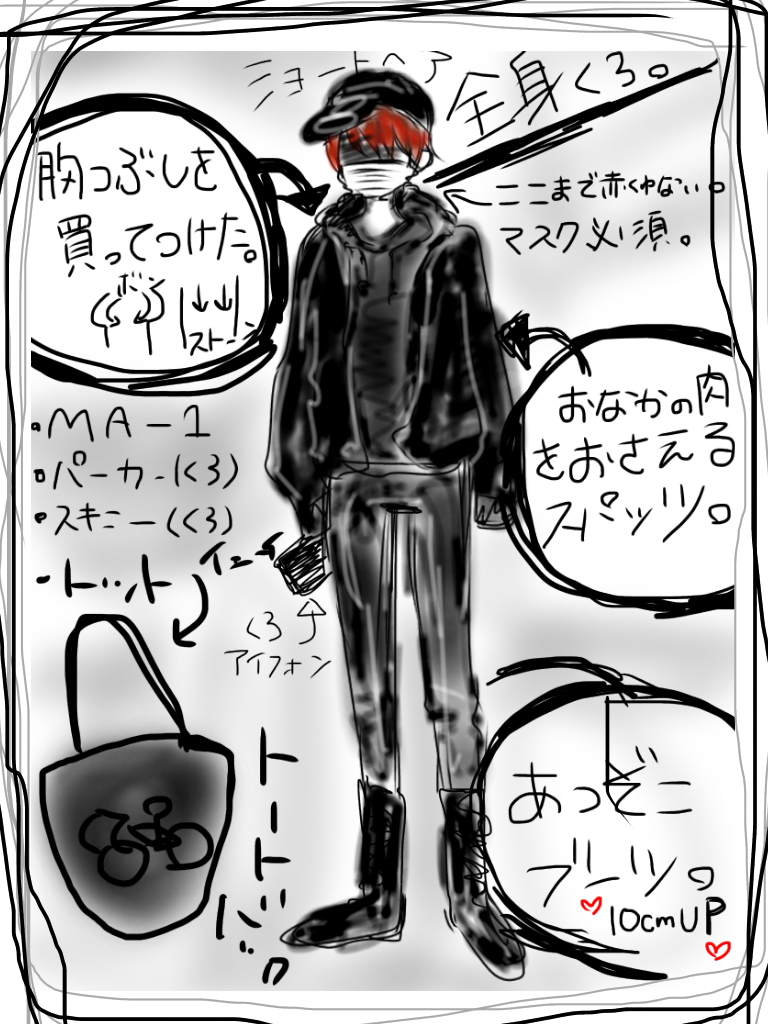 ショートヘア
全身くろ。
胸つぶしを
買ってつけた。
ボン
ストーン
ここまで赤くゆない。
マスク必須。
おなかの肉
をおさえる
スパッツ。
・MA-1
・パーカー(くろ)
・スキニー(くろ)
・ドット
くろ
アイフォン
トートバック
あつぞこ
ブーツ。
10cmUP